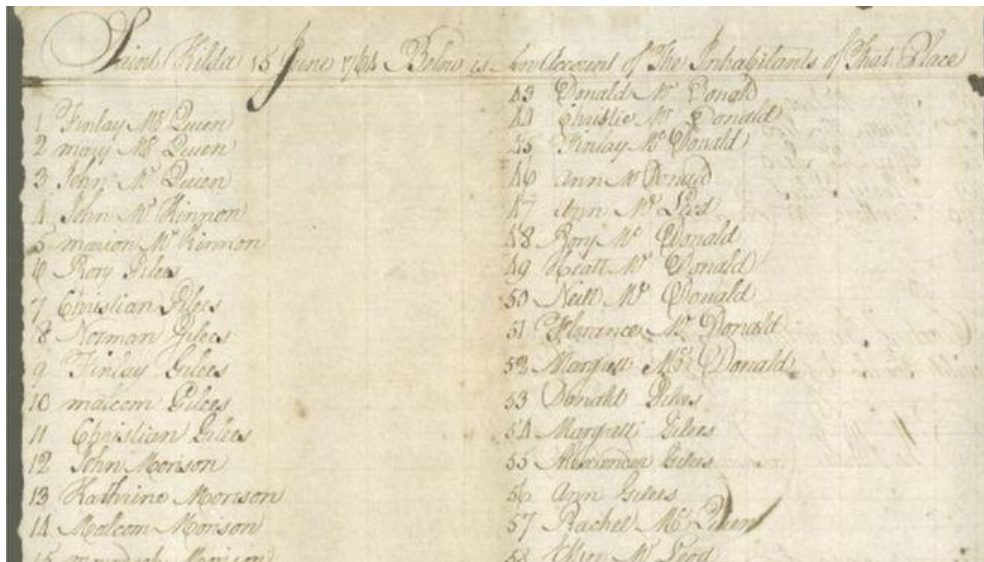 Saint Kilda 15 June 1764 Below is An Account of The Inhabitants of That Place
1 Finlay Mc Queen
2 mary Mc Queen
3 John Mc Queen
4 John Mc Kinnon
5 marion Mc Kinnon
6 Rory Gilees
7 Christian Gilees
8 Norman Gilees
9 Finlay Gilees
10 malcom Gilees
11 Christian Gilees
12 John Morison
13 Kathrine Morison
14 Malcom Morison
15 Morison
43 Donald Mc Donald
44 Christie Mc Donald
45 Finlay Mc Donald
46 Ann Mc Donald
47 Ann Mc Leod
48 Rory Mc Donald
49 Mc Donald
50 Neill Mc Donald
51 Florance Mc Donald
52 Margatt Mc Donald
53 Donald Gilees
54 Margatt Gilees
55 Gilees
56 Ann Gilees
57 Rachel Mc Queen
58 Mc Leod